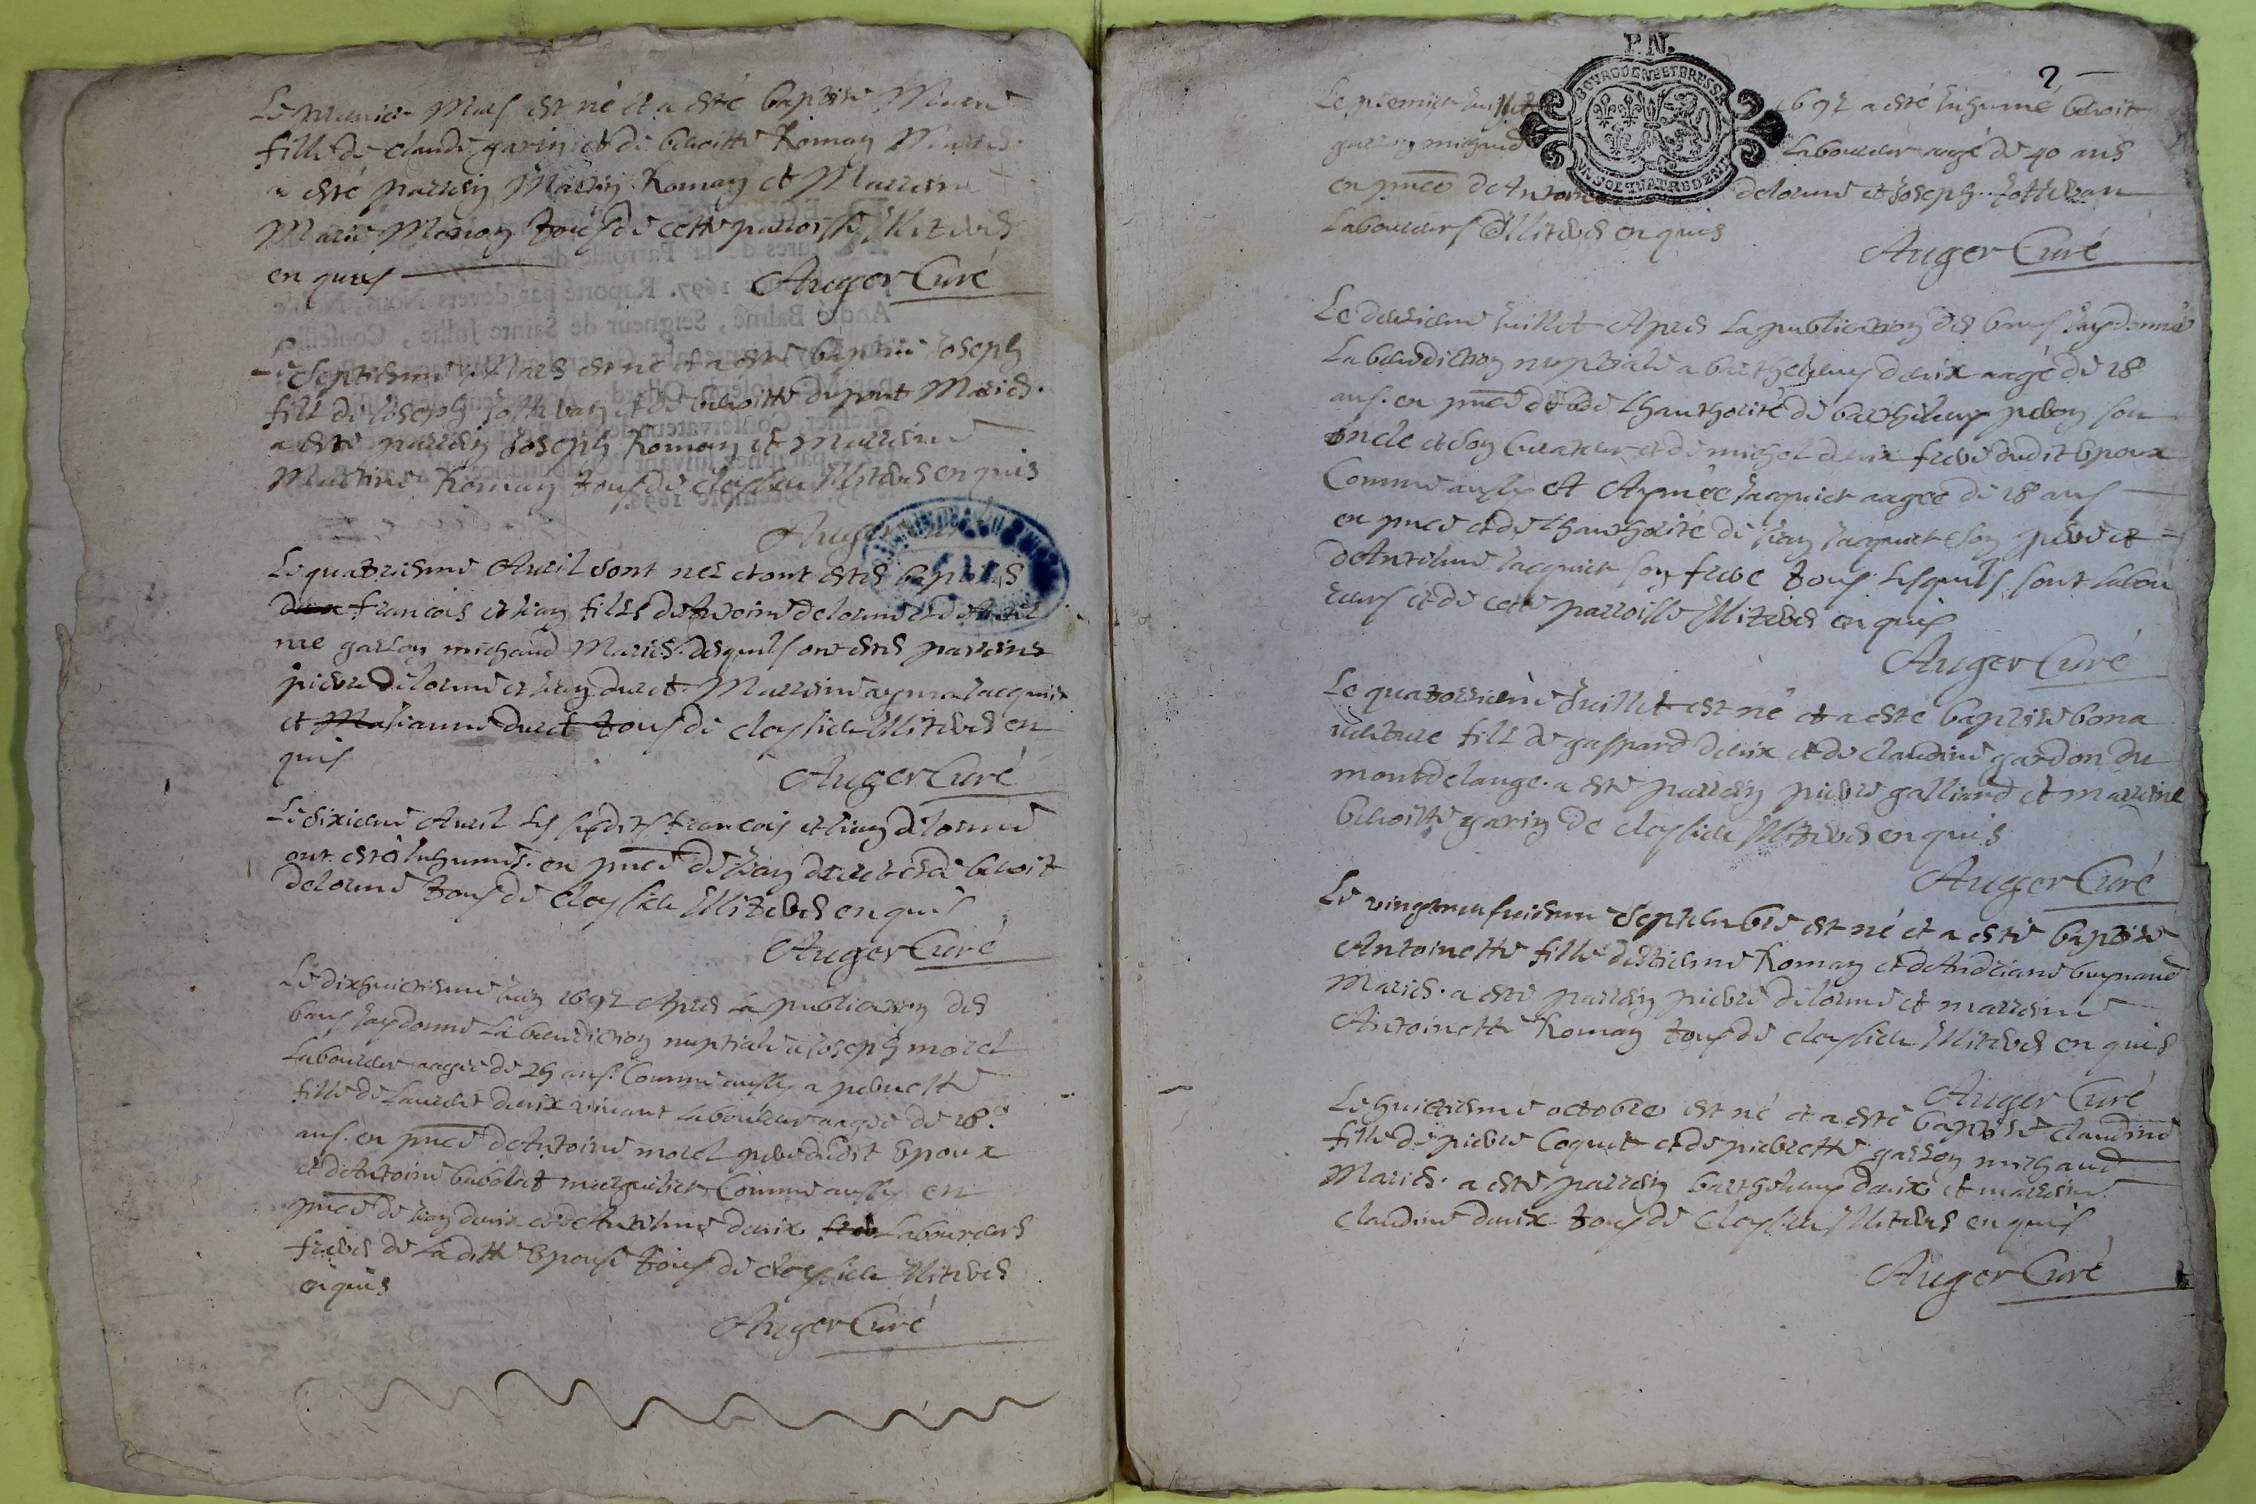 Le premier Mars est né et a esté baptisée
fille de claude garin et de benoitte Roman Mariés.
a esté parrein Martin Roman et Marreine
Marie Morion tous de cette parroisse Illiterés
enquis
Auger Curé
Le septiesme Mars est né et a esté baptisé Joseph
fils de Joseph et de benoitte dupont Mariés.
a esté parrein Joseph Roman et Marreine
Martine Roman tous de cleyssieu Illiterés enquis
Auger Curé
Le quatriesme Avril sont nez et ont estés baptisés
deux francois et Jean fills de Antoine delorme et de Anthel
me garson michaud Mariés. desquels ont estés parreins
pierre delorme et Jean duret. Marreine ayma Jacquier
et Marianne duret tous de cleyssieu Illiterés en
quis
Auger Curé
Le sixieme Avril les susdits francois et Jean delorme
ont estés Inhumés. en pnce de Jean duret et de benoit
delorme tous de cleyssieu Illiterés enquis
Auger Curé
Le dixhuictiesme Juin 1692 Apres la publication des
bans Jay donné La benediction nuptiale a Joseph morel
Laboureur aagé de 25 ans. Comme aussy a pernette
fille de Laurent deuix vivant laboureur aagée de 18
ans. en pnce de Antoine morel pere dudit Epoux
et de Antoine marguilier Comme aussy en
pnce de Jean deuix et de Anthelme deuix Laboureurs
freres de La ditte Epouse tous de cleyssieu Illiterés
enquis
Auger Curé
P.N.
BOURGOGNE ET BRESSE
UN SOL QUATRE DEN
2
Le premier Juillet 1692 a esté Inhumé benoit
garson michaud Laboureur aagé de 40 ans
en pnce de Antoine delorme et Joseph
Laboureurs Illiterés enquis
Auger Curé
Le deuxieme Juillet Apres La publication des bans Jay donné
La benediction nuptiale a barthelemy deuix aagé de 28
ans. en pnce et de Lhauthorité de barthelemy son
oncle et son Curateur et de michel deuix frere dudit Epoux
Comme aussy et Aymée Jacquier aagée de 28 ans
en pnce et de Lhauthorité de Jean Jacquier son pere et
de Anthelme Jacquier son frere tous Lesquels sont labou
reurs et de cette parroisse Illiterés enquis
Auger Curé
Le quatorzieme Juillet est né et a esté baptisé bona
venture fils de gaspard deuix et de claudine gardon du
montdelange. a esté parrein pierre galliard et marreine
benoitte garin de cleyssieu Illiterés enquis
Auger Curé
Le vingtneufviesme Septembre est né et a esté baptisée
Antoinette fille destienne Roman et de Andréane
Mariés. a esté parrein pierre delorme et marreine
Antoinette Roman tous de cleyssieu Illiterés enquis
Auger Curé
Le huictiesme octobre est né et a esté baptisée claudine
fille de pierre Coquet et de pierrette garson michaud
Mariés. a esté parrein barthelemy deuix et marreine
claudine deuix tous de cleyssieu Illiterés enquis
Auger Curé